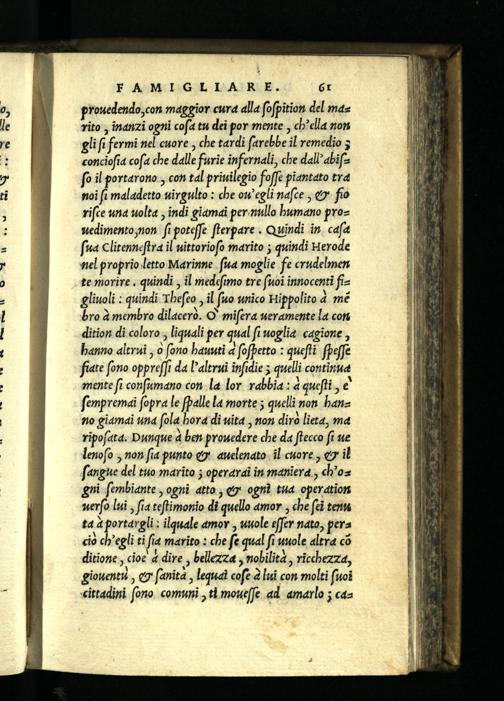 FAMIGLIARE. 61
prouedendo, con maggior cura alla sospition del ma=
rito, inanzi ogni cosa tu dei por mente, ch'ella non
gli si fermi nel cuore, che tardi sarebbe il remedio;
conciosia cosa che dalle furie infernali, che dall'abis=
so il portarono, con tal priuilegio fosse piantato tra
noi si maladetto virgulto: che ou'egli nasce, & fio
risce una volta, indi giamai per nullo humano pro=
uedimento, non si potesse sterpare. Quindi in casa
sua Clitennestra il uittorioso marito; quindi Herode
nel proprio letto Marinne sua moglie fe crudelmen
te morire. quindi, il medesimo tre suoi innocenti fi=
gliuoli: quindi Theseo, il suo unico Hippolito à mē
bro à membro dilacerò. O' misera ueramente la con
dition di coloro, liquali per qual si uoglia cagione,
hanno altrui, ò sono hauuti à sospetto: questi spesse
fiate sono oppressi da l'altrui insidie; quelli continua
mente si consumano con la lor rabbia: à questi, e'
sempremai sopra le spalle la morte; quelli non han=
no giamai una sola hora di uita, non dirò lieta, ma
riposata. Dunque à ben prouedere che da stecco si ue
lenoso, non sia punto & auelenato il cuore, & il
sangue del tuo marito; operarai in maniera, ch'o=
gni sembiante, ogni atto, & ogni tua operation
uerso lui, sia testimonio di quello amor, che sei tenu
ta à portargli: ilquale amor, uuole esser nato, per=
ciò ch'egli ti sia marito: che se qual si uuole altra cō
ditione, cioè à dire, bellezza, nobilità, ricchezza,
giouentù, & sanità, lequai cose à lui con molti suoi
cittadini sono comuni, ti mouesse ad amarlo; ca=